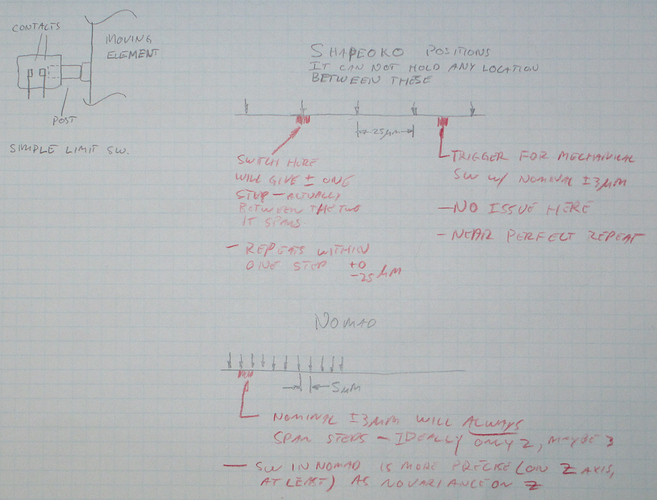 CONTACTS
MOVING
ELEMENT
POST
SIMPLE LIMIT SW.
SHAPEOKO POSITIONS
IT CAN NOT HOLD ANY LOCATION
BETWEEN THESE
25µm
SWITCH HERE
WILL GIVE ± ONE
STEP - ACTUALLY
BETWEEN THE TWO
IT SPANS
- REPEATS WITHIN
ONE STEP +0
-25 µM
TRIGGER FOR MECHANICAL
SW W/ NOMINAL ±3µM
- NO ISSUE HERE
- NEAR PERFECT REPEAT
NOMAD
5µM
NOMINAL ±3µM WILL ALWAYS
SPAN STEPS - IDEALLY ONLY 2, MAYBE 3
- SW IN NOMAD IS MORE PRECISE (ON Z AXIS,
AT LEAST) AS NO VARIANCE ON Z